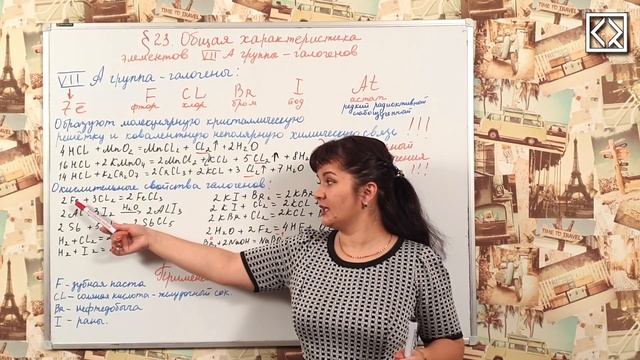 § 23. Общая характеристика
элементов VII А группы - галогенов
VII А группа - галогены:
7ē
F CL Br I At
фтор хлор бром йод астат
редкий радиоактивной
Образуют молекулярную кристаллическую
решётку и ковалентную неполярную химическую связь !!!
4HCL + MnO₂ = MnCL₂ + CL₂↑ + 2H₂O
16HCL + 2KMnO₄ = 2MnCL₂ + 2KCL + 5CL₂↑ + 8H
14HCL + K₂Cr₂O₇ = 2CrCL₃ + 2KCL + 3CL₂↑ + 7H₂O
!!!
Окислительные свойства галогенов:
2Fe + 3CL₂ = 2FeCL₃
2ALI₃
2Sb + 5 SbCL₅
H₂ + CL₂ =
H₂ + I₂ =
2KI + Br₂ = 2KBr
2KI + = 2KCL +
2KBr + CL₂ = 2KCL +
2H₂O + 2F₂ = 4HF
Br₂ + 2NaOH = NaBr
F - зубная паста
CL - соляная кислота - желудочный сок.
Br - нефтедобыча
I - раны.
TIME TO TRAVEL